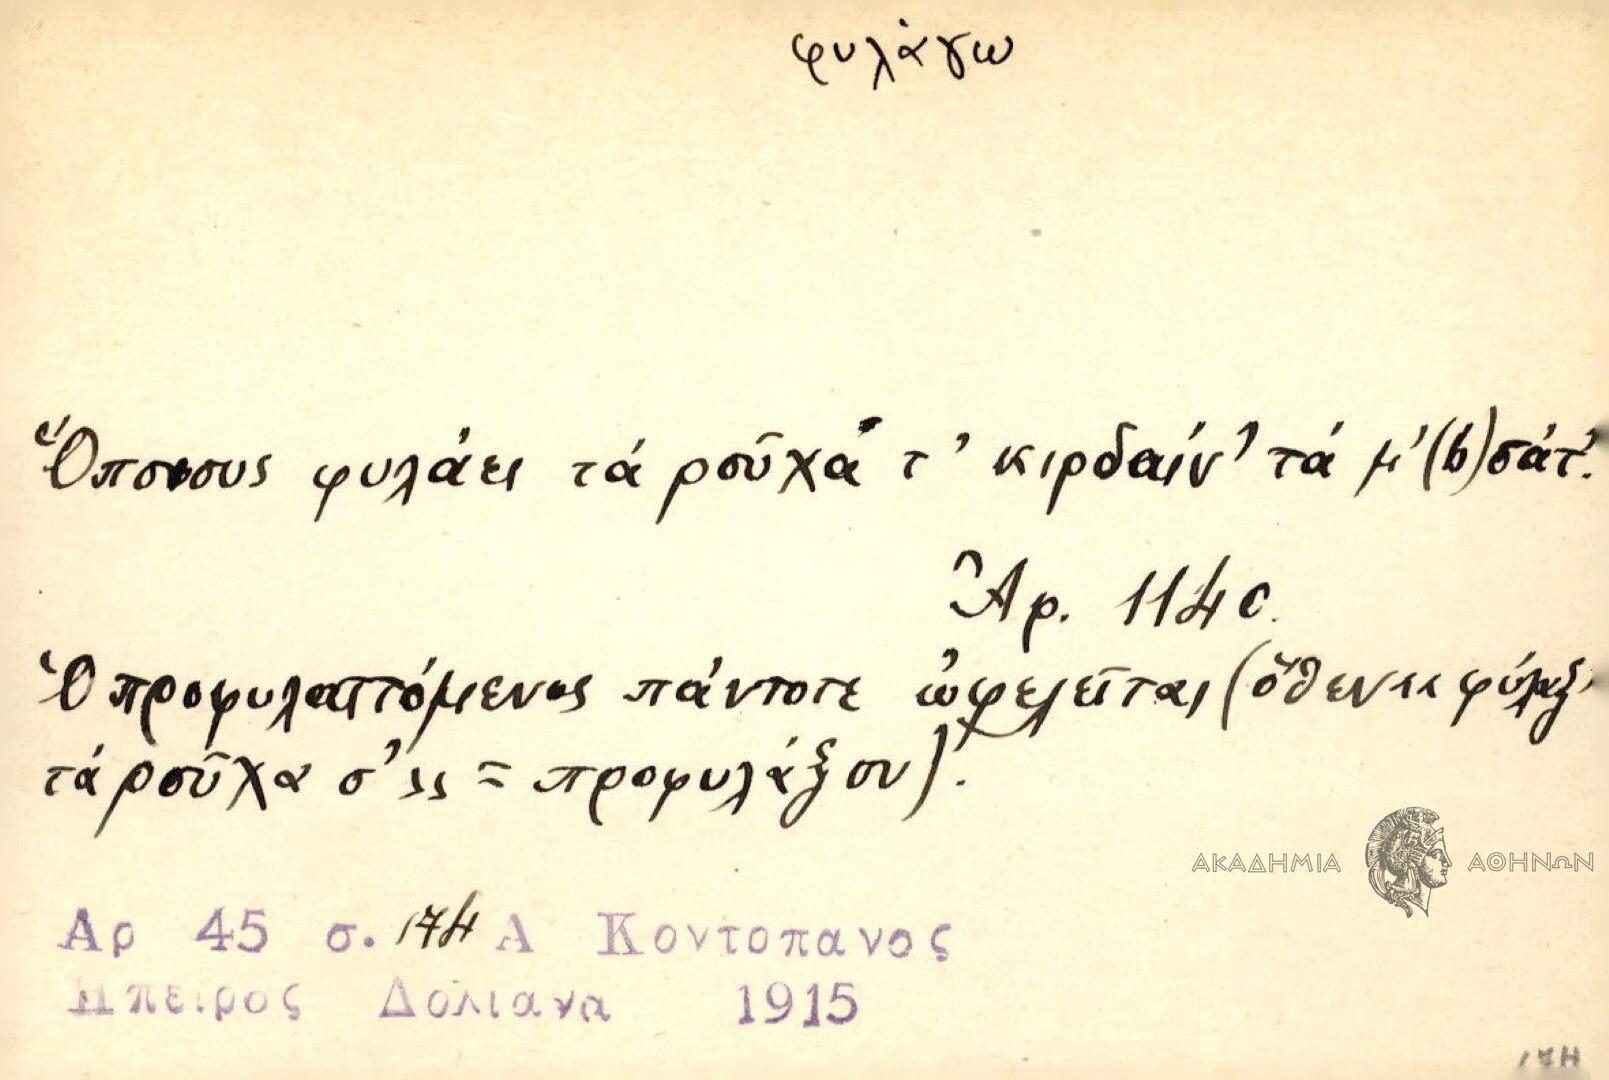 φυλάγω
Ὅποιους φυλάει τά ροῦχά τ' κιρδαίν' τά μ'(b)σάτ'.
Ἀρ. 1140.
Ὁ προφυλαττόμενος πάντοτε ὠφελεῖται (ὅθεν κι φύλαξ'
τά ροῦχα σ' = προφυλάξου).
ΑΚΑΔΗΜΙΑ ΑΘΗΝΩΝ
Αρ 45 σ. 174 Α Κοντοπανος
Ηπειρος Δολιανα 1915
174